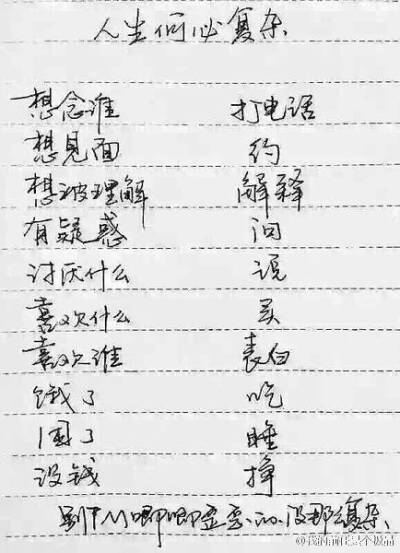 人生何必复杂
想念谁 打电话
想见面 约
想被理解 解释
有疑惑 问
讨厌什么 说
喜欢什么 买
喜欢谁 表白
饿了 吃
困了 睡
没钱 挣
别TM唧唧歪歪的没那复杂